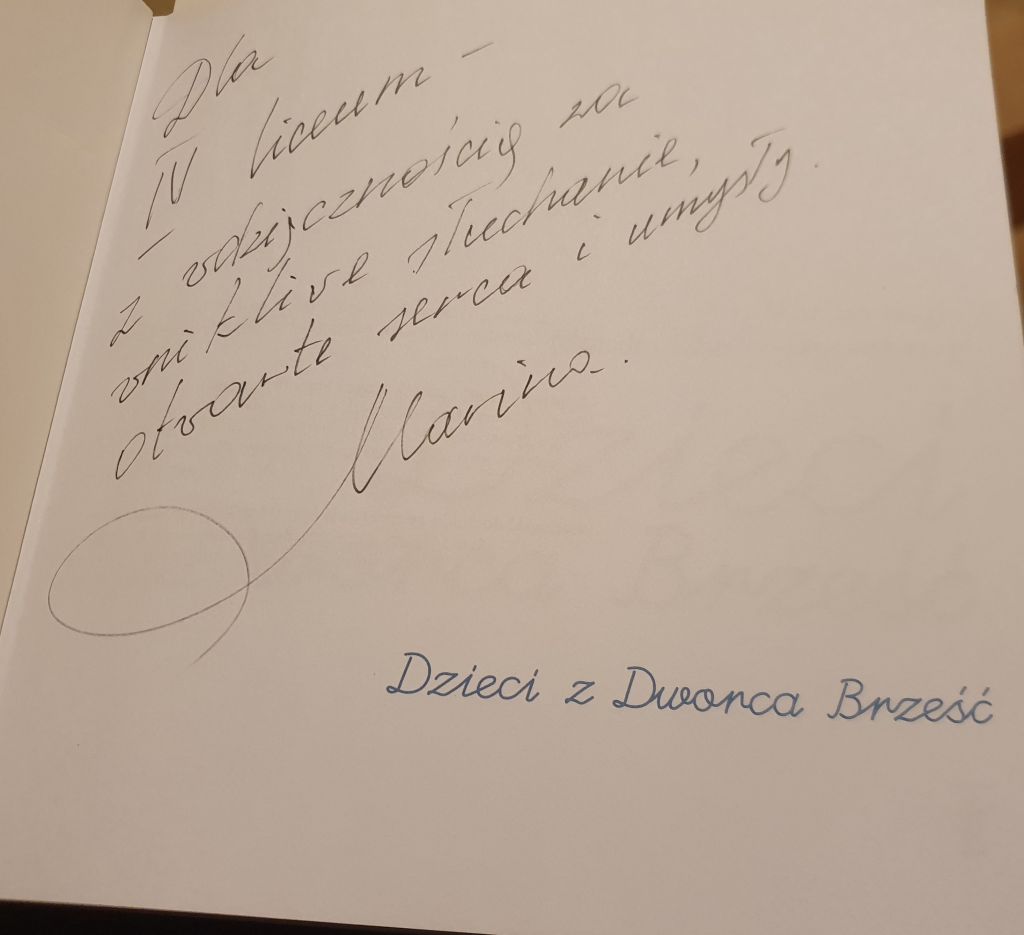 Dla
IV liceum -
- z wdzięcznością za
wnikliwe słuchanie,
otwarte serca i umysły.
Marina.
Dzieci z Dworca Brześć